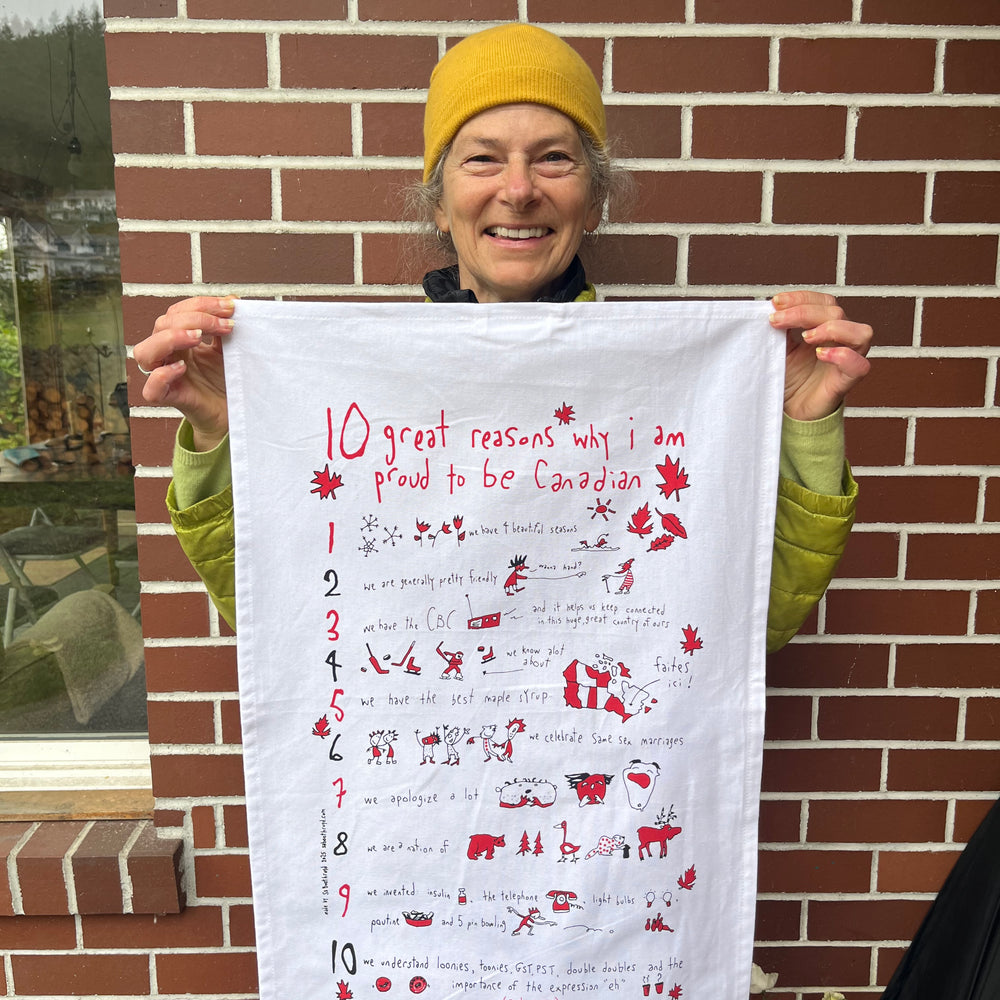 10 great reasons why i am
proud to be Canadian
1 we have 4 beautiful seasons
2 we are generally pretty friendly wanna hand?
3 we have the CBC and it helps us keep connected
in this huge, great country of ours
4 we know alot
about
5 we have the best maple syrup faites
ici !
6 we celebrate same sex marriages
7 we apologize a lot
8 we are a nation of
9 we invented insulin , the telephone , light bulbs ,
poutine and 5 pin bowling
10 we understand loonies, toonies, GST, PST, double doubles and the
importance of the expression "eh"